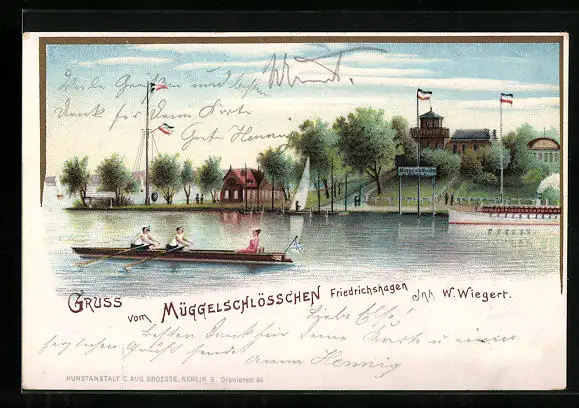 Viele Grüsse und besten
Dank für Deine Karte
Gret Hennig
GRUSS vom MÜGGELSCHLÖSSCHEN Friedrichshagen Inh. W. Wiegert.
Liebe Else!
besten Dank für Deine Karte u. einen
herzlichen Gruss sendet
Anna Hennig
KUNSTANSTALT C. AUG. GROESSE, BERLIN S. Oranienstr. 69